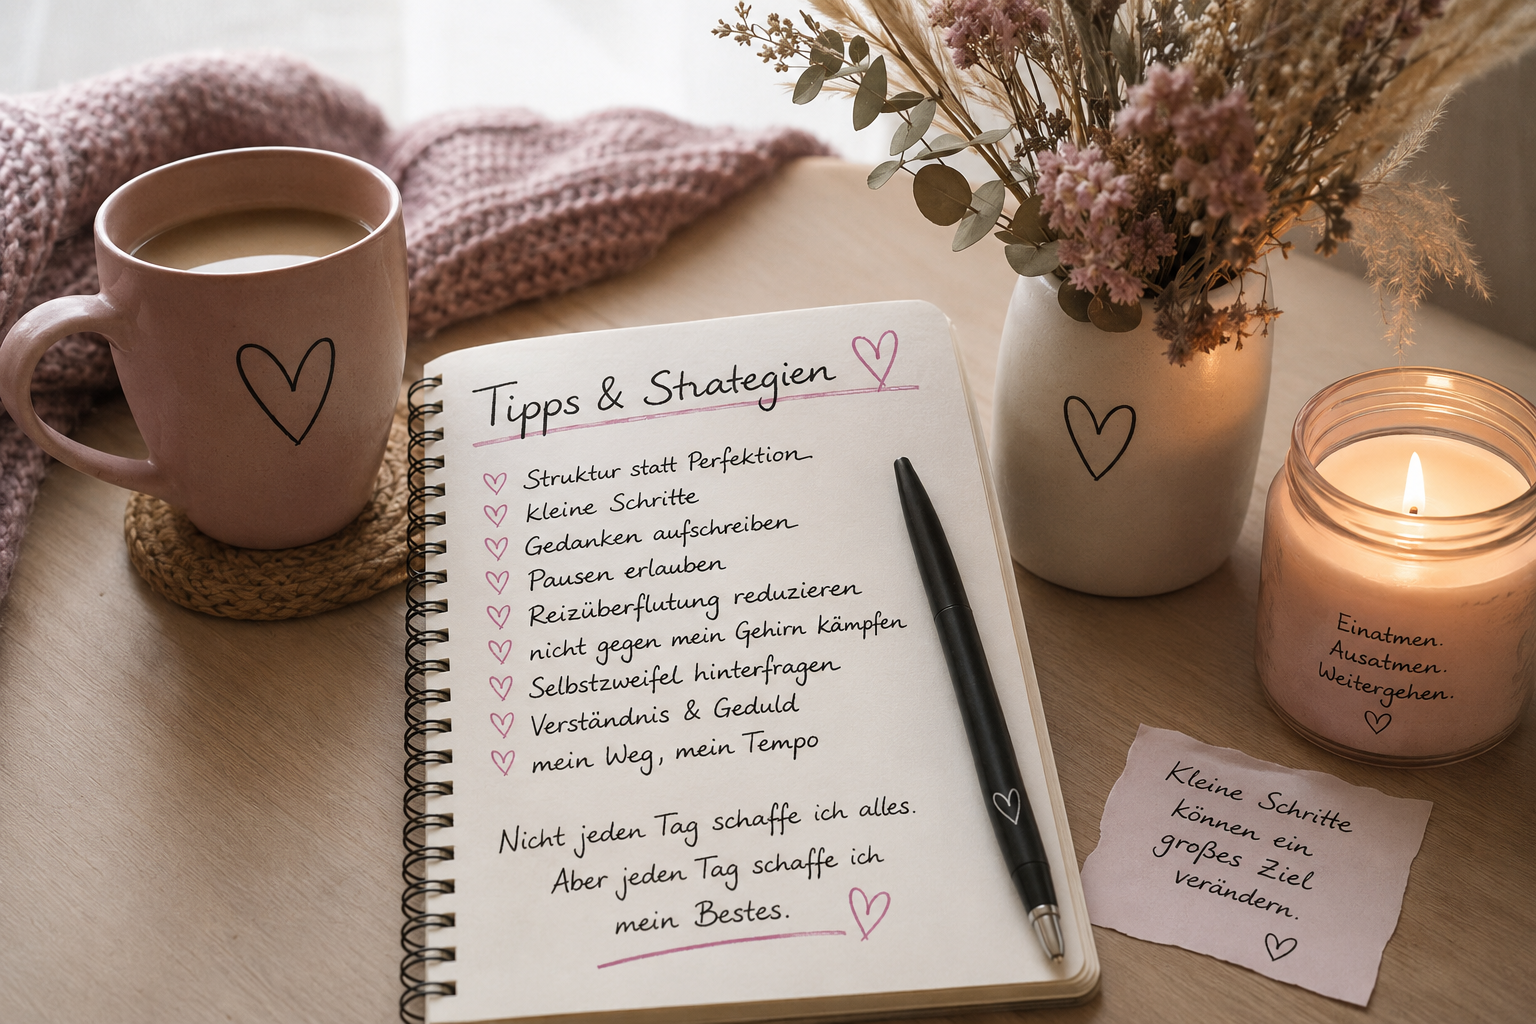 Tipps & Strategien
Struktur statt Perfektion
kleine Schritte
Gedanken aufschreiben
Pausen erlauben
Reizüberflutung reduzieren
nicht gegen mein Gehirn kämpfen
Selbstzweifel hinterfragen
Verständnis & Geduld
mein Weg, mein Tempo
Nicht jeden Tag schaffe ich alles.
Aber jeden Tag schaffe ich
mein Bestes.
Einatmen.
Ausatmen.
Weitergehen.
Kleine Schritte
können ein
großes Ziel
verändern.